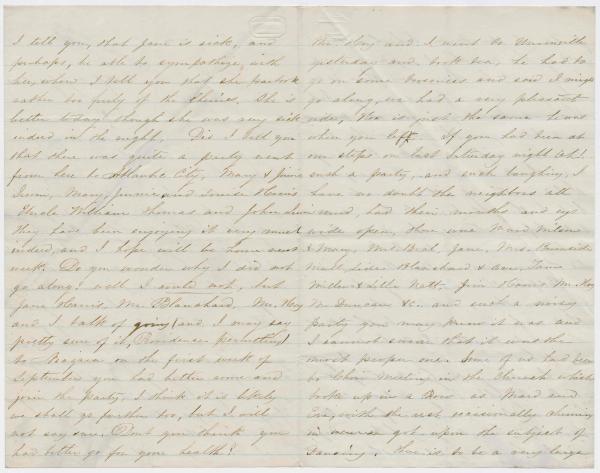 I tell you, that Jane is sick, and
perhaps, be able to sympathize, with
her, when I tell you that she partook
rather too freely of the She is
better today though she was very sick
indeed in the night. Did I tell you
that there was quite a party went
from here to Atlantic City, Mary & Jane
Irwin, Mary, Jennie, and Louise Harris
Uncle William Thomas and John Irwin
they have been enjoying it very much
indeed, and I hope will be home next
week. Do you wonder why I did not
go along? well I could not, but
Jane Harris, Mr. Blanchard, Mr. Hoy
and I talk of going (and I may say
pretty sure of it, Providence permitting)
to on the first week of
September you had better come and
join the party. I think it is likely
we shall go farther too, but I will
not say sure. Don't you think you
had better go for your health?
Mr. Hoy and I went to
yesterday and took tea, he had to
go on some business and said I might
go along, we had a very pleasant
ride, is just the same 'twas
when you left. If you had been at
our steps on last Saturday night Oh!
such a party, and such laughing, I
have no doubt the neighbors all
had their mouths and eyes
wide open, there were Ward Wilson
& Mary, Miss Beal, Jane, Mrs. Burnside
Blanchard &
Miller & Little Natt. Jim Harris Mr. Hoy
Mr. Duncan &c. and such a noisy
party you may know it was and
I cannot swear that it was the
most proper one. Some of us had been
to Choir Meeting in the Church which
broke up in a Row as Ward and
Eve, with the rest occasionally
in got upon the subject of
dancing. There is to be a very large